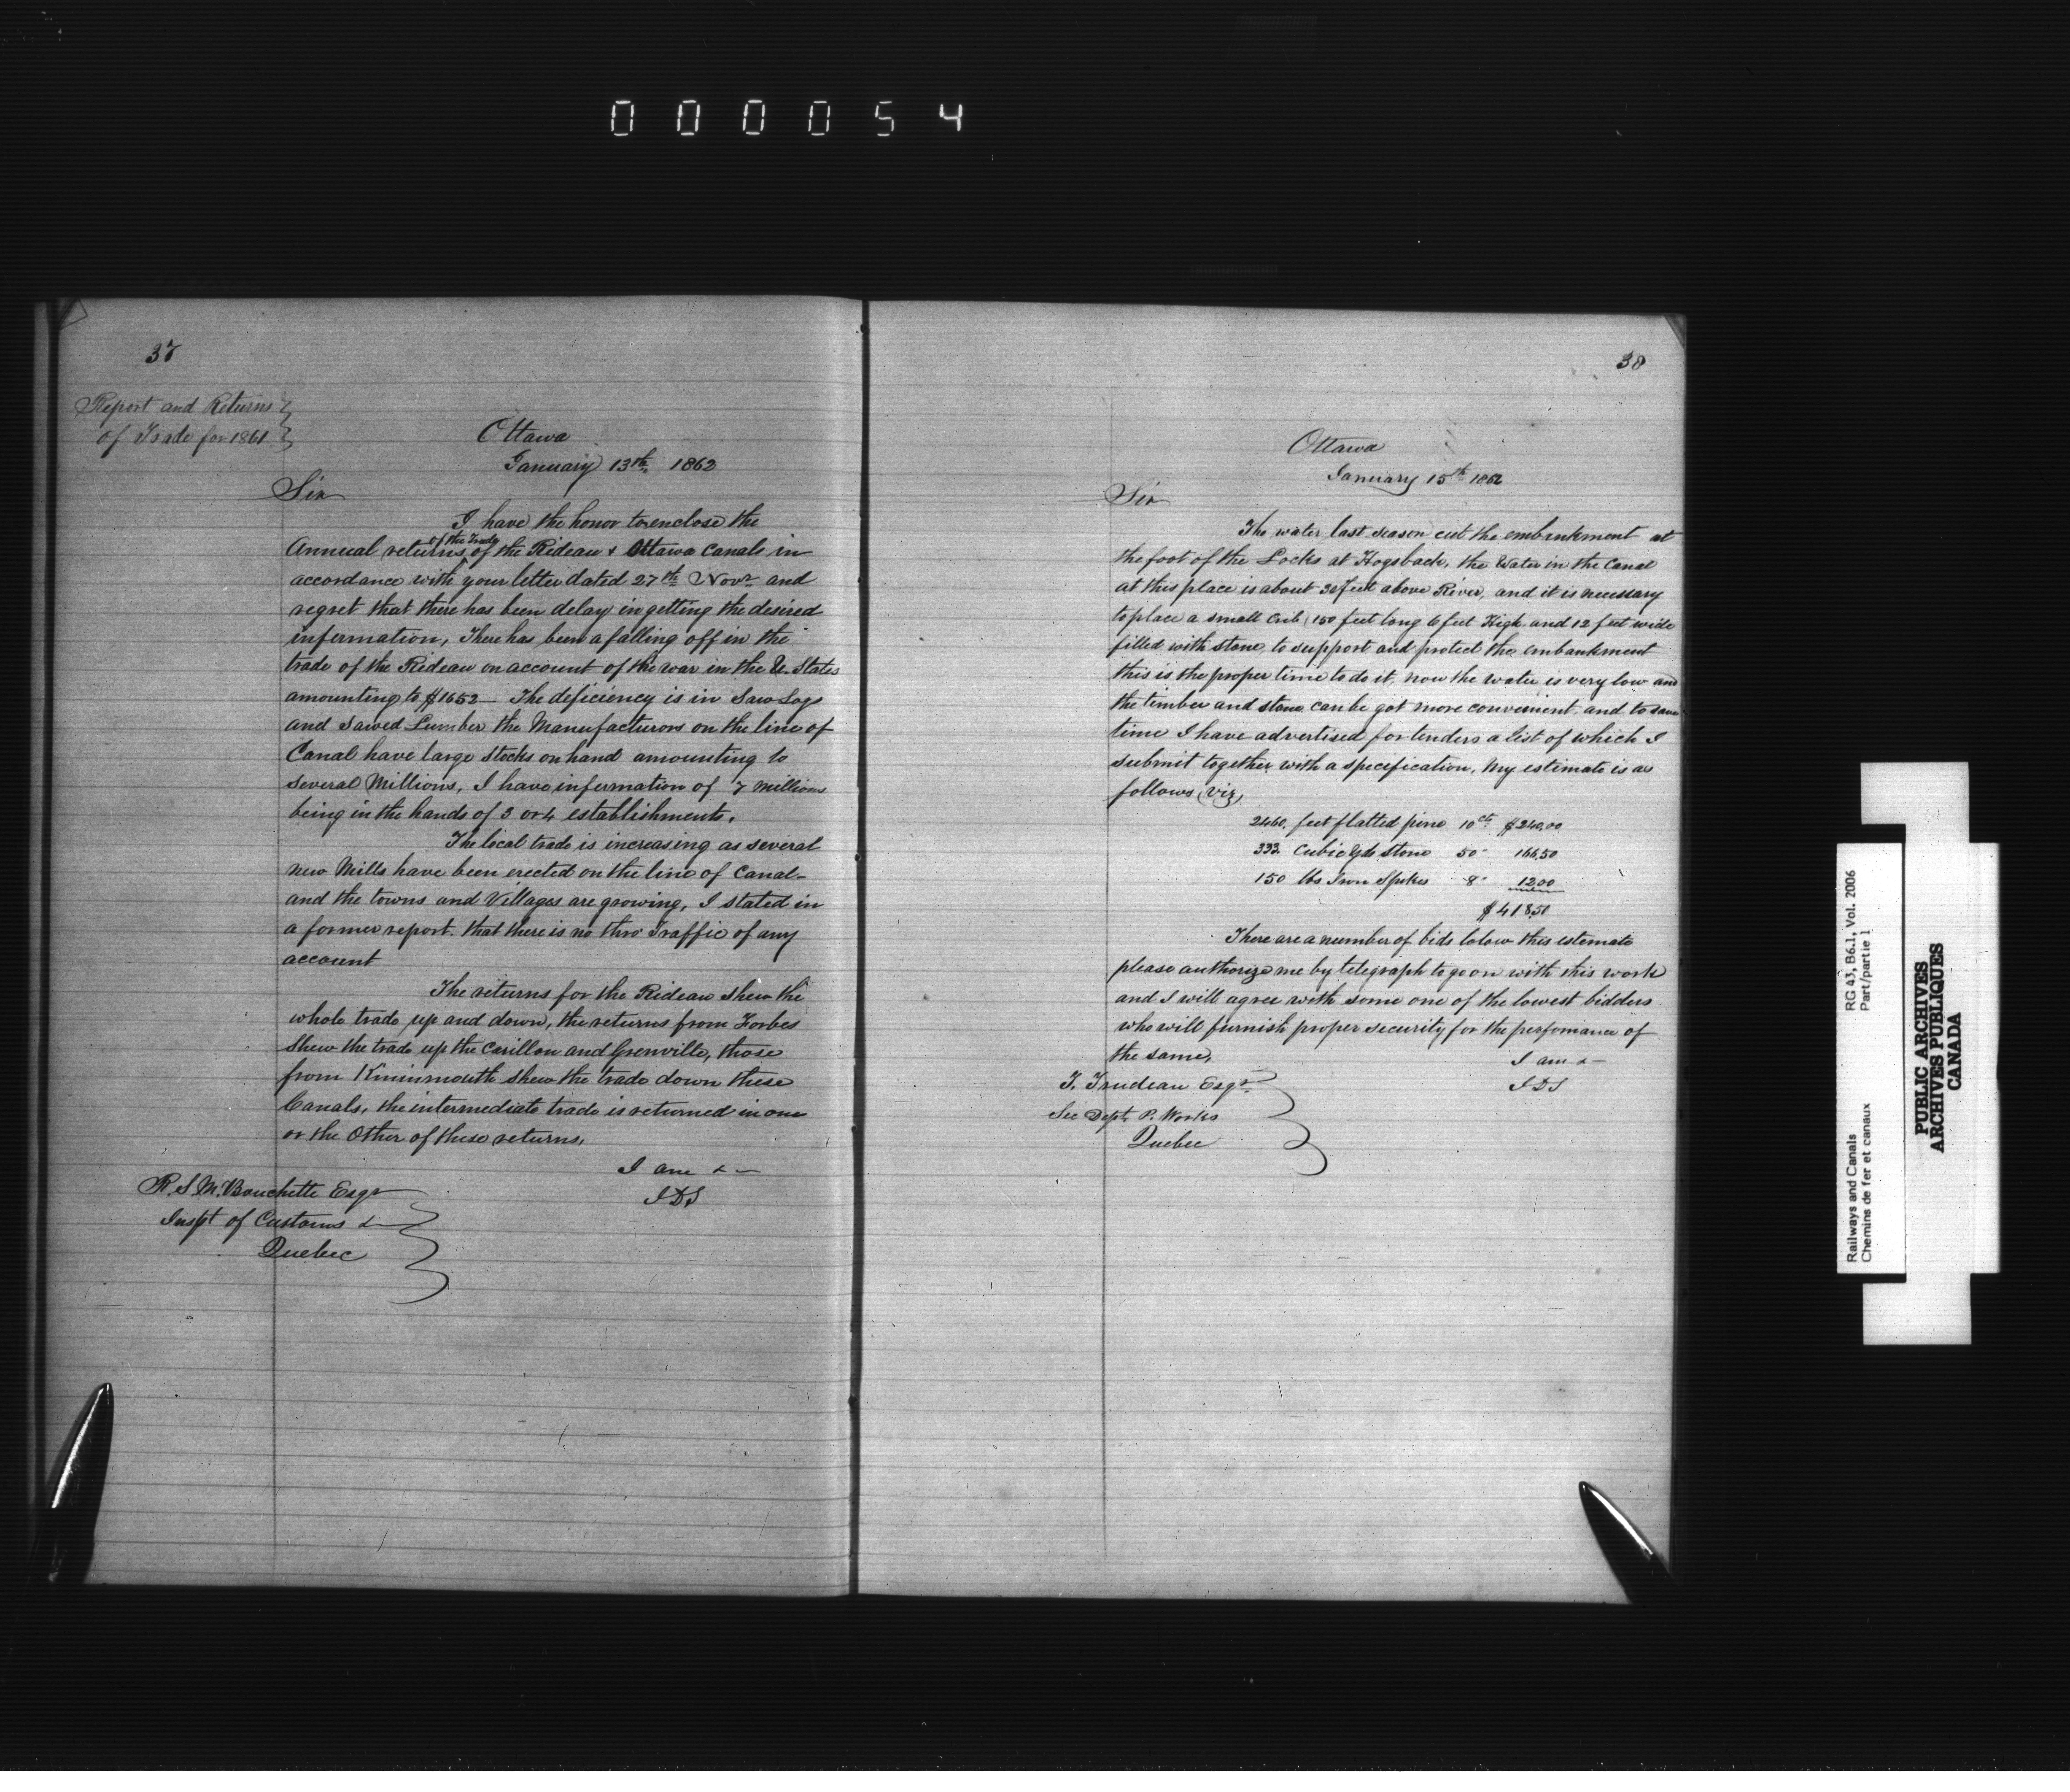 000054
37
Report and Returns
of Trade for 1861
Ottawa
January 13th. 1862
Sir
I have the honor to enclose the
Annual returns of the Trade of the Rideau & Ottawa Canals in
accordance with your letter dated 27th Novr and
regret that there has been delay in getting the desired
information, There has been a falling off in the
trade of the Rideau on account of the war in the U. States
amounting to $1652 — The deficiency is in Saw Logs
and Sawed Lumber the Manufacturors on the line of
Canal have large Stocks on hand amounting to
several Millions, I have information of 7 millions
being in the hands of 3 or 4 establishments.
The local trade is increasing as several
new Mills have been erected on the line of Canal —
and the towns and Villages are growing, I stated in
a former report. that there is no thro' Traffic of any
account
The returns for the Rideau shew the
whole trade up and down, the returns from Forbes
Shew the trade up the Carillon and Grenville, those
from Kininmouth shew the trade down these
Canals, the intermediate trade is returned in one
or the Other of these returns.
I am & —
JDS
R. S. M. Bouchette Esqr
Inspt of Customs &
Quebec
38
Ottawa
January 15th 1862
Sir
The water last season cut the embankment at
the foot of the Locks at Hogsback, the Water in the Canal
at this place is about 30 feet above River, and it is necessary
to place a small Crib (150 feet long 6 feet High and 12 feet wide
filled with stone, to support and protect the embankment
this is the proper time to do it, now the water is very low and
the timber and stone can be got more convenient. and to save
time I have advertised for tenders a list of which I
submit together with a specification, My estimate is as
follows (viz)
2460. feet flatted pine 10 cts $240,00
333. Cubic Yds Stone 50 " 166,50
150 lbs Iron Spikes 8 " 12,00
$418,50
There are a number of bids below this estemate
please authorize me by telegraph to go on with this work
and I will agree with some one of the lowest bidders
who will furnish proper security for the perfomance of
the same,
I am & —
JDS
T. Trudeau Esqr.
Sec Dept. P. Works
Quebec
Railways and Canals
Chemins de fer et canaux
RG 43, B6.1, Vol. 2006
Part/partie 1
PUBLIC ARCHIVES
ARCHIVES PUBLIQUES
CANADA